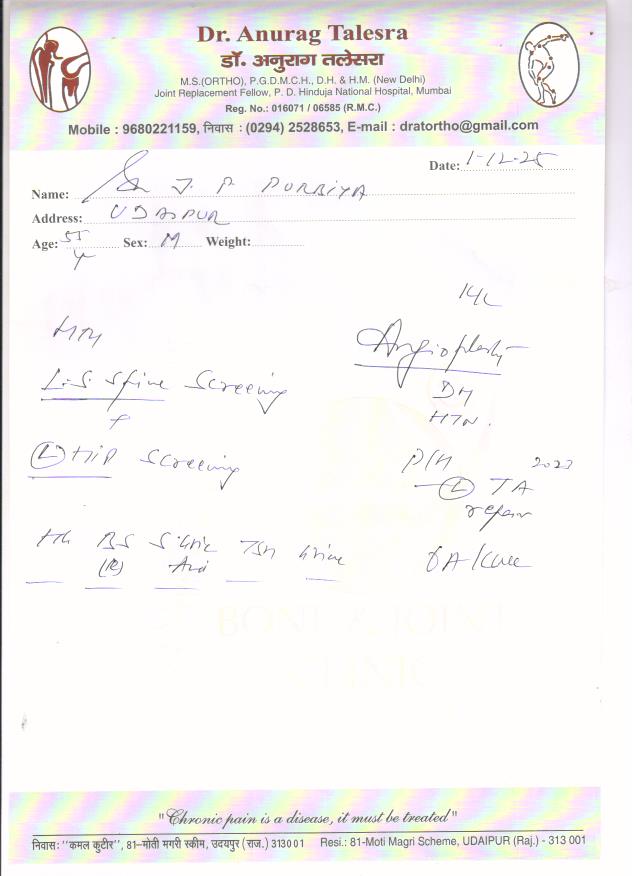 Dr. Anurag Talesra
डॉ. अनुराग तलेसरा
M.S.(ORTHO), P.G.D.M.C.H., D.H. & H.M. (New Delhi)
Joint Replacement Fellow, P. D. Hinduja National Hospital, Mumbai
Reg. No.: 016071 / 06585 (R.M.C.)
Mobile : 9680221159, निवास : (0294) 2528653, E-mail : dratortho@gmail.com
Date: 1-12-25
Name: J. P. PURBIYA
Address: UDAIPUR
Age: 55 Y Sex: M Weight:
Angioplasty
L.S. Spine Screening
DM
HTN.
(L) HIP Screening
P/H 2023
(L) TA
repair
BS Uric TSH Urine
(R) Acid
OA/Knee
BONE & JOINT
CLINIC
"Chronic pain is a disease, it must be treated"
निवास: "कमल कुटीर", 81-मोती मगरी स्कीम, उदयपुर (राज.) 313001 Resi.: 81-Moti Magri Scheme, UDAIPUR (Raj.) - 313 001